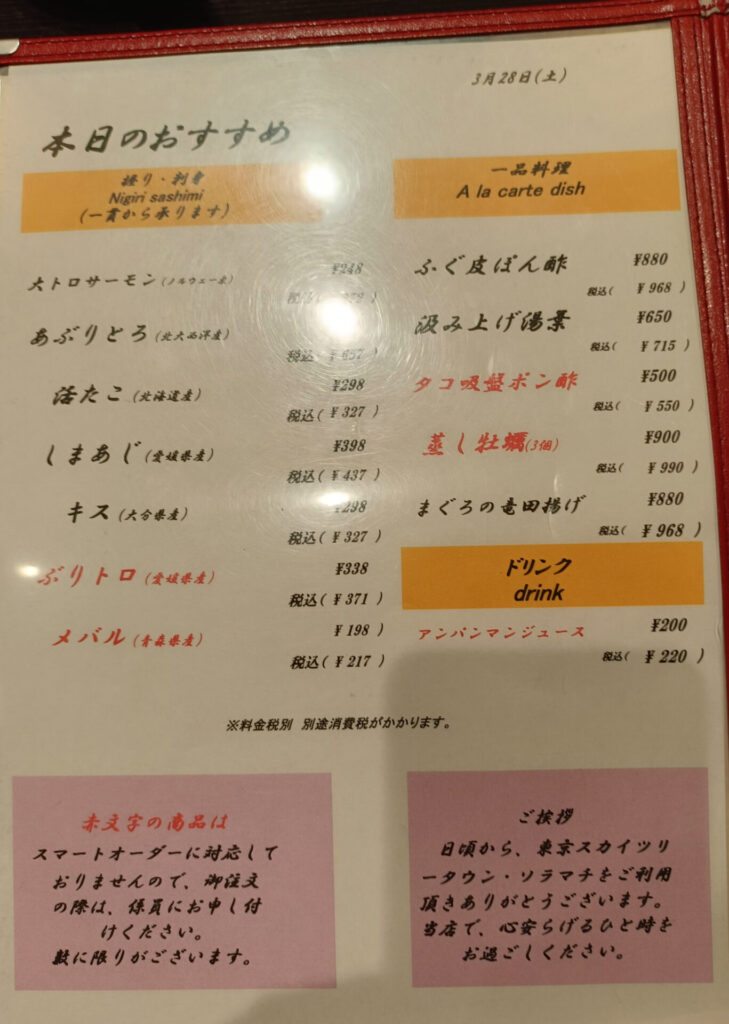 3月28日(土)
本日のおすすめ
握り・刺身
Nigiri sashimi
(一貫から承ります)
大トロサーモン(ノルウェー産) ¥248
税込(
あぶりとろ(北大西洋産)
税込( ¥ 657 )
活たこ(北海道産) ¥298
税込( ¥ 327 )
しまあじ(愛媛県産) ¥398
税込( ¥ 437 )
キス(大分県産) ¥298
税込( ¥ 327 )
ぶりトロ(愛媛県産) ¥338
税込( ¥ 371 )
メバル(青森県産) ¥ 198
税込( ¥ 217 )
一品料理
A la carte dish
ふぐ皮ぽん酢 ¥880
税込( ¥ 968 )
汲み上げ湯葉 ¥650
税込( ¥ 715 )
タコ吸盤ポン酢 ¥500
税込( ¥ 550 )
蒸し牡蠣(3個) ¥900
税込( ¥ 990 )
まぐろの竜田揚げ ¥880
税込( ¥ 968 )
ドリンク
drink
アンパンマンジュース ¥200
税込( ¥ 220 )
※料金税別 別途消費税がかかります。
赤文字の商品は
スマートオーダーに対応して
おりませんので、御注文
の際は、係員にお申し付
けください。
数に限りがございます。
ご挨拶
日頃から、東京スカイツリ
ータウン・ソラマチをご利用
頂きありがとうございます。
当店で、心安らげるひと時を
お過ごしください。